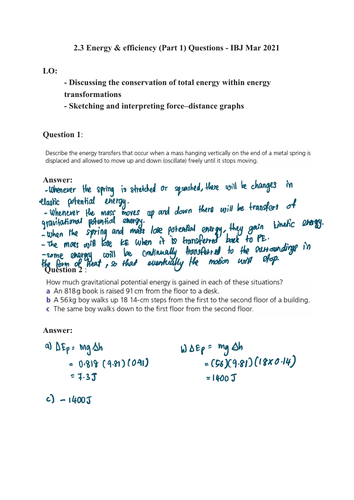 2.3 Energy & efficiency (Part 1) Questions - IBJ Mar 2021
LO:
- Discussing the conservation of total energy within energy
transformations
- Sketching and interpreting force–distance graphs
Question 1:
Describe the energy transfers that occur when a mass hanging vertically on the end of a metal spring is
displaced and allowed to move up and down (oscillate) freely until it stops moving.
Answer:
- Whenever the spring is stretched or squashed, there will be changes in
elastic potential energy.
- Whenever the mass moves up and down there will be transfers of
gravitational potential energy.
- When the spring and mass lose potential energy, they gain kinetic energy.
- The mass will lose KE when it is transferred back to PE.
- some energy will be continually transferred to the surroundings in
the form of heat, so that eventually the motion will stop.
Question 2 :
How much gravitational potential energy is gained in each of these situations?
a An 818g book is raised 91 cm from the floor to a desk.
b A 56kg boy walks up 18 14-cm steps from the first to the second floor of a building.
c The same boy walks down to the first floor from the second floor.
Answer:
a) ΔEp = mgΔh b) ΔEp = mgΔh
= 0.818 (9.81)(0.91) = (56)(9.81)(18×0.14)
= 7.3J = 1400J
c) - 1400J